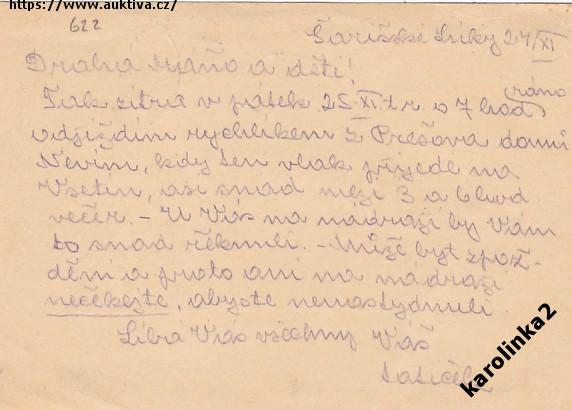 https://www.auktiva.cz/
622
Šarišské Lúky 24/XI
Drahá Máňo a děti!
Tak zítra v pátek 25.XI. t.r. o 7 hod ráno
odjíždím rychlíkem z Prešova domů
Nevím, kdy ten vlak přijede na
Vsetín, asi snad mezi 3 a 6 hod
večer. – U Vás na nádraží by Vám
to snad řeknuli. – Může být zpož-
dění a proto ani na nádraží
nečekejte, abyste nenastydnuli.
Líbá Vás všechny Váš
tatíček
karolinka2